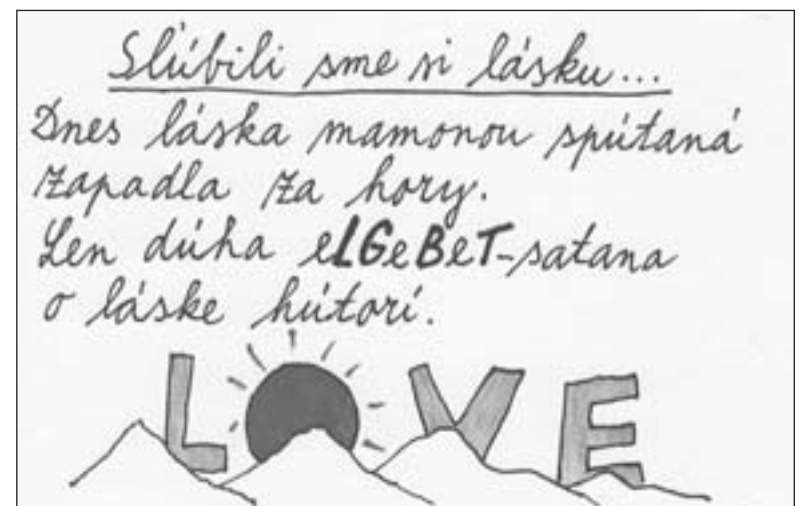 Sľúbili sme si lásku...
Dnes láska mamonou spútaná
zapadla za hory.
Len dúha eLGeBeT-satana
o láske hútorí.
LOVE